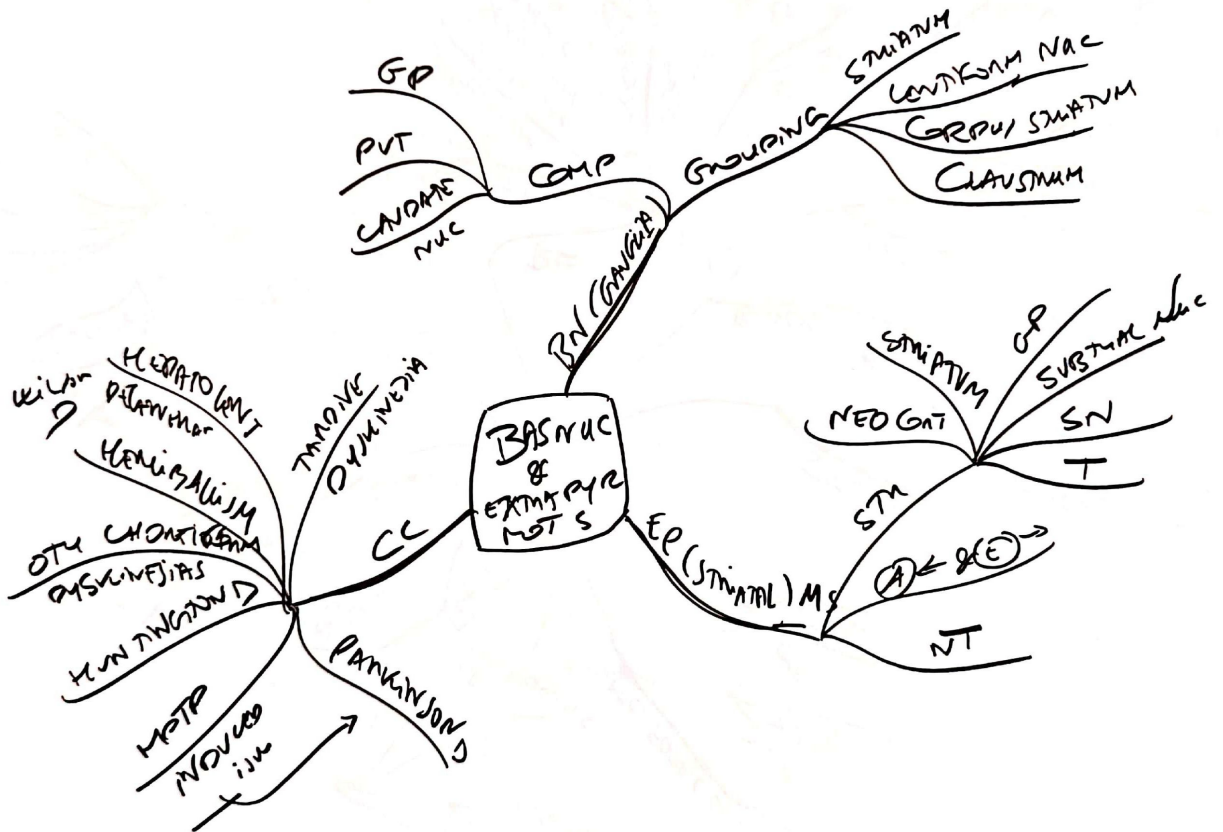 BASNUC
&
EXTRAPYR
MOT S
BN (GANGLIA)
COMP
GP
PUT
CAUDATE
NUC
GROUPING
STRIATUM
LENTIFORM NUC
CORPUS STRIATUM
CLAUSTRUM
EP (STRIATAL) MS
STR
NEO CRT
STRIATUM
GP
SUBTHAL NUC
SN
T
(A) ← & (E) →
NT
CC
TARDIVE
DYSKINESIA
HEPATOLENT
WILSON
D
HEMIBALLISM
OTH CHOREIFORM
DYSKINESIAS
HUNTINGTON D
MPTP
INDUCED
PARKINSON
D